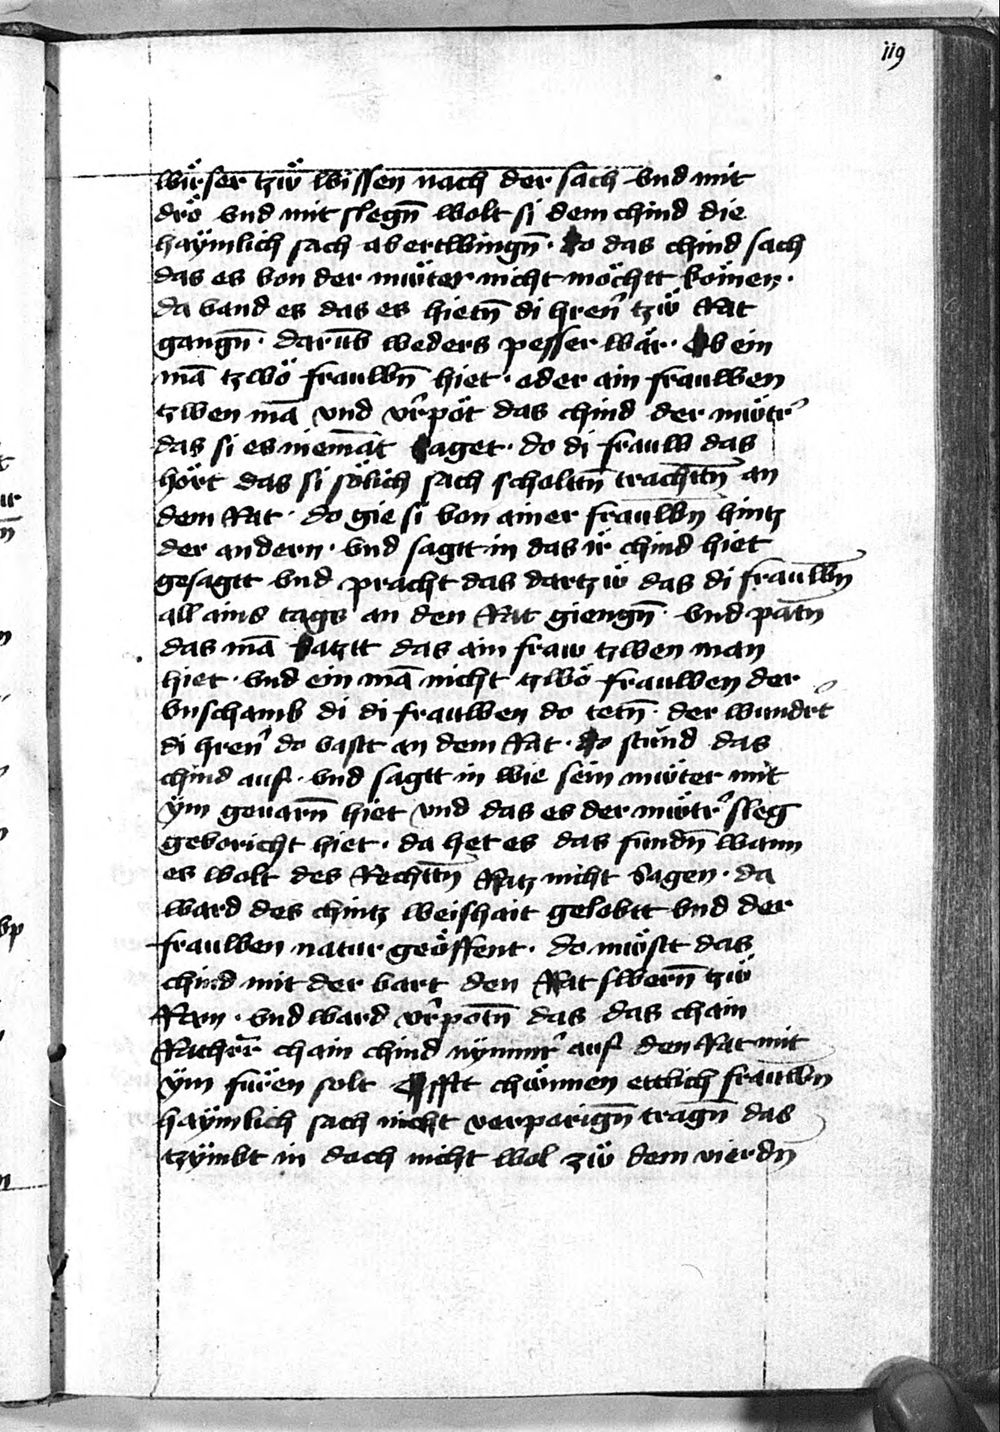 119
wirser tzw̋ wissen nach der sach vnd mit
drö vnd mit slegn̄ wolt si dem chind die
haẏmlich sach abertwingn̄ · Do das chind sach
das es von der mẅter nicht möchtt köm̄en ·
da vand es das es hietn̄ di hren̄ tzẅ Rat
gangn̄ · darūb weders pesser wär · Ob ein
mā tzwö frauwn̄ hiet · oder ain frauwen
tzwen mā vnd vr̓pöt das chind der mẅtr̓
das si es niemāt saget · do di frauw das
hört das si sölich sach scholtn̄ trachttn̄ an
dem Rat · do gie si von ainer frauwn̄ hintz
der andern · vnd sagtt in das ir chind hiet
gesagtt vnd pracht das dartzẅ das di frauwn̄
all ains tags an den Rat giengn̄ · vnd patn̄
das mā satztt das ain fraw tzwen man
hiet · vnd ein mā nicht tzwö frauwen der
vnschamb di di frauwen do tetn̄ · der wundr̓t
di hren̄ do vastt an dem Rat · do stund das
chind auf · vnd sagtt in wie sein mẅter mit
ẏm geuarn̄ hiet vnd das es der mẅtr̓ sleg
gevoricht hiet · da het es das fundn̄ wann
es wolt des Rechttn̄ Ratz nicht sagen · da
ward des chintz weishait gelobtt vnd der
frauwen natur geöffent · do mẅstt das
chind mit der vart den Rat swern̄ tzẅ
Rom · vnd ward vr̓potn̄ das das chain
Rathr̄r chain chind nÿmmr̓ auf den Rat mit
ẏm füren solt Offtt chẅnnen ettlich frauwn̄
haẏmlich sach nicht verporign̄ tragn̄ das
tzẏmbt in doch nicht wol zẅ dem vierdn̄